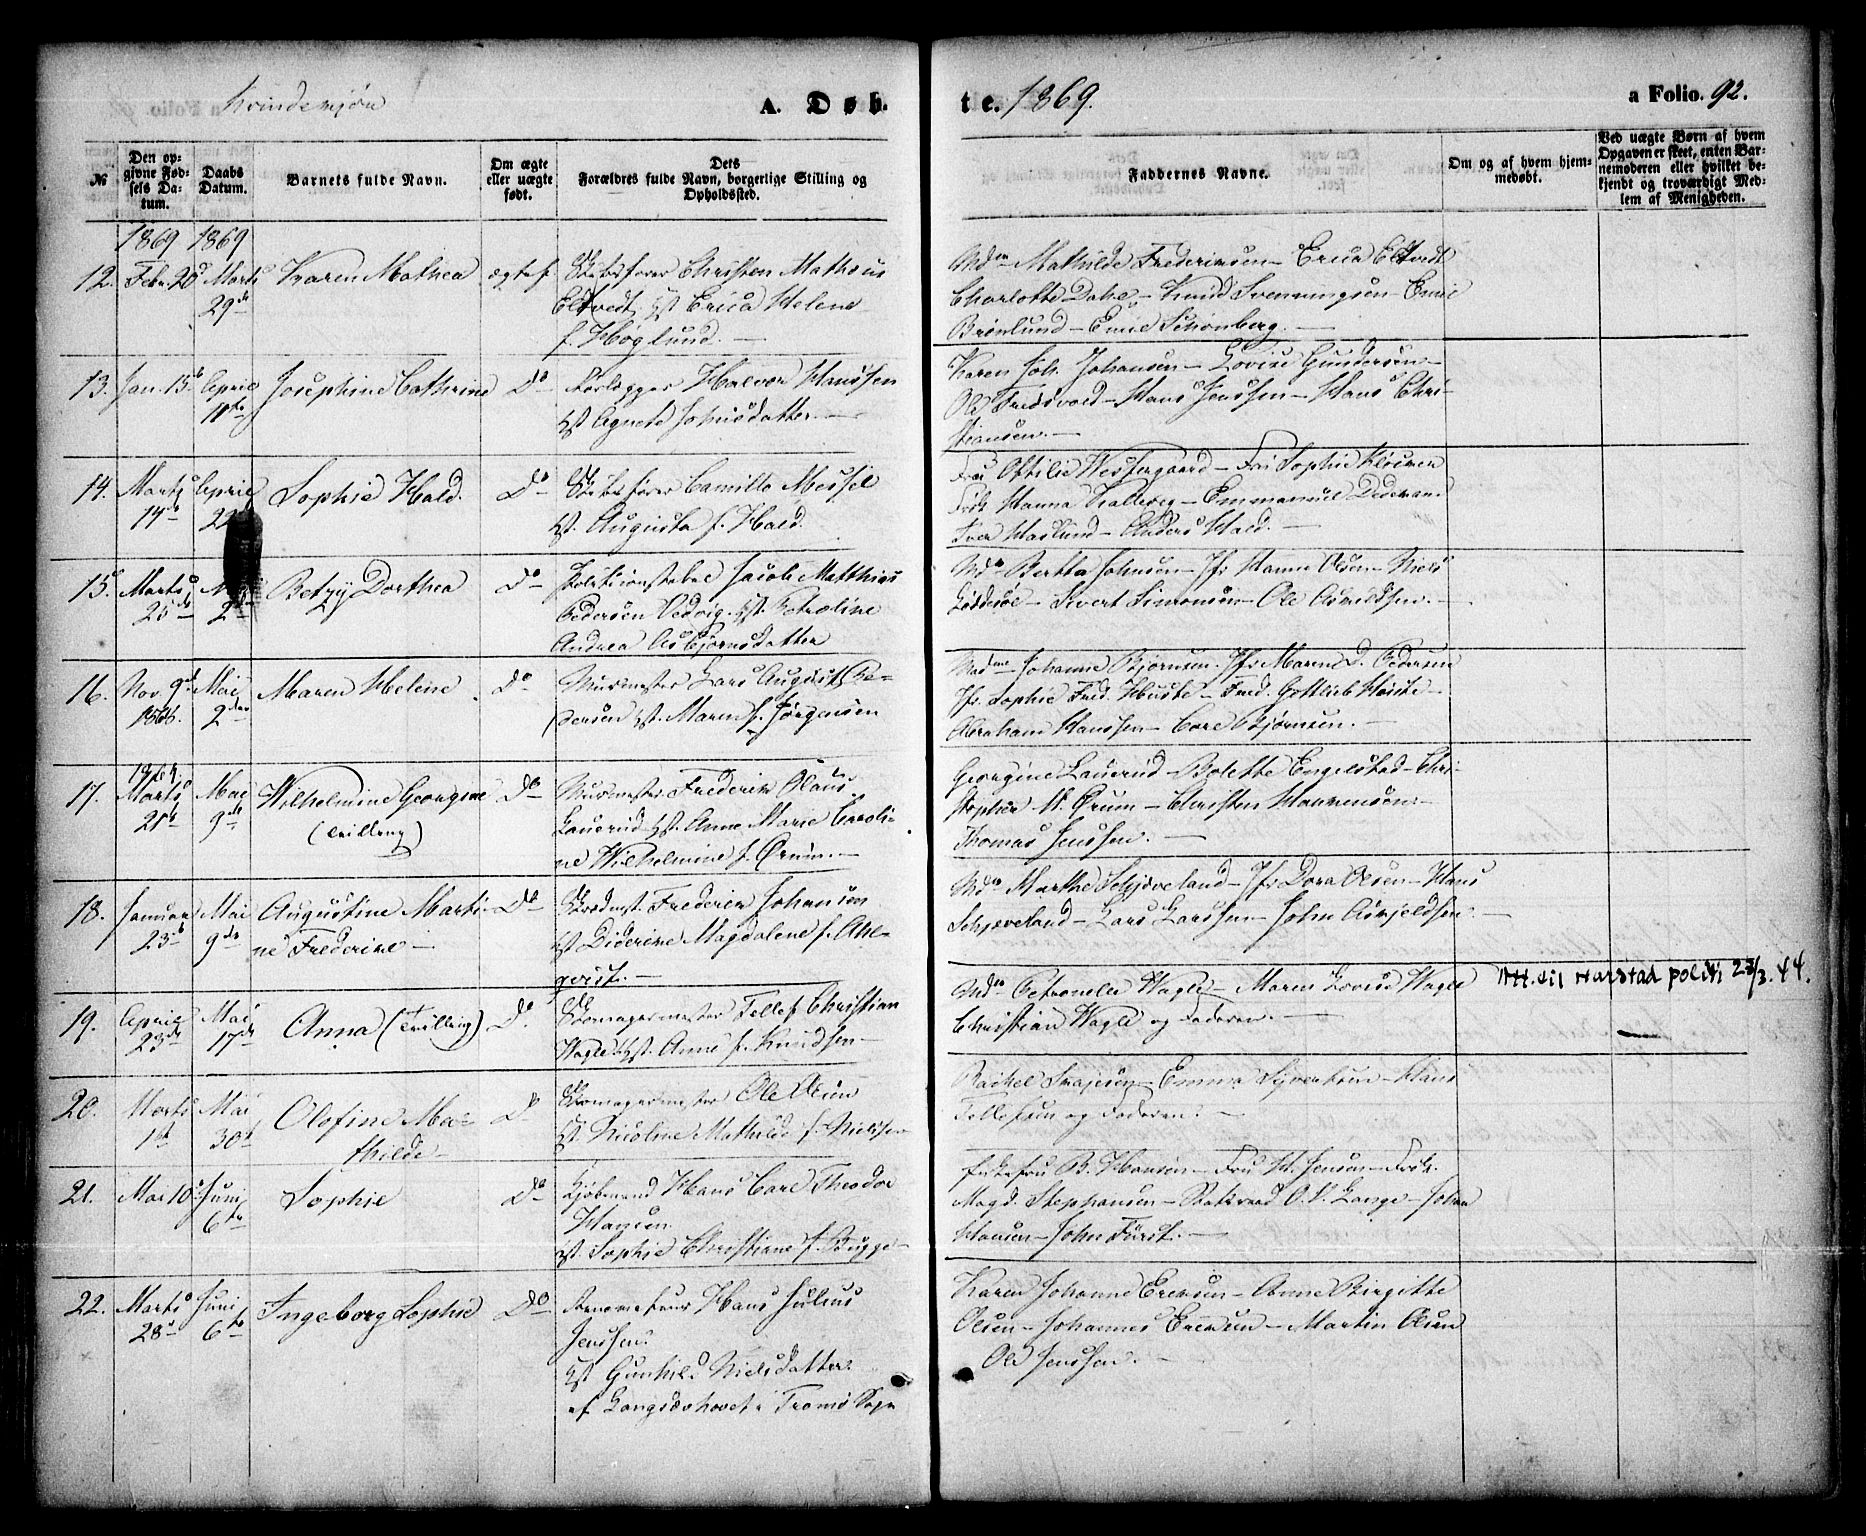 Kvindekjøn A. Døbte. 1869. a Folio. 92.
№
Den opgivne Fødsels Datum.
Daabs Datum.
Barnets fulde Navn.
Om ægte eller uægte født.
Dets Forældres fulde Navn, borgerlige Stilling og Opholdssted.
Faddernes Navne.
Om og af hvem hjemmedøbt.
Ved uægte Børn af hvem Opgaven er skeet, enten Barnemoderen eller hvilket bekjendt og troværdigt Medlem af Menigheden.
1869 1869
12. Febr. 20 Marts 29de Karen Mathea ægte f. Skibsfører Christen Mathæus
Eltvedt Hst. Erica Helene
f. Høglund.
Mdm Mathilde Frederiksen – Erica Eltvedt
Charlotte Dahl – Knud Svenningsen – Emil
Brønlund – Emil Schønberg.
13. Jan. 15 April Josephine Cathrine Do Halvor Hanssen
Hst Agnete Johnsdatter.
Karen Joh. Johansen – Lovise Gundersen –
Ole Fredsvold – Hans Jenssen – Hans Chri-
stiansen.
14. Marts 14 April 22 Sophie Hald. Do Skibsfører Camillo Messel
Hst. Augusta f. Hald.
Fru Ottilie Westergaard – Fru Sophie
Frøk Hanna Kallevig – Emmanuel Dedekam
Iver Haslund – Anders Hald.
15. Marts 25de 2den Betzy Dorthea Do Politikonstabel Jacob Matthias
Pedersen Vedvig. Hst. Petroline
Andrea Asbjørnsdatter
Mdm Bertha Johnsen – Jfr Hanne Olsen – Niels
– Sivert Simonsen – Ole Askildsen.
16. Nov. 9de 1868. Mai 2den Maren Helene Do Murmester Lars August Pe-
dersen Hst. Maren f. Jørgensen
Mdme Johanne Bjørnsen. Jfr Maren D. Pedersen
Jfr. Sophie Fred. Holste – Fred. Gottlieb Holste –
Abraham Hanssen – Carl Bjørnsen.
1869.
17. Marts 21 Mai 9de Wilhelmine Georgine Do Murmester Frederik Olaus
(Tvilling)
Lauerud Hst. Anne Marie Caroli-
ne Wilhelmine f. Ørum.
Georgine Lauerud – Bolette Engelstad – Chri-
stopher M. Ørum – Christen
Thomas Jenssen.
18. Januar 23 Mai 9de Augustine Marti- Do Frederik Johansen
ne Frederikke
Hst Diderikke Magdalene f. Ahl-
qvist.
Mdm Marthe Schjæveland – Jfr Dora Olsen – Hans
Schjæveland – Lars Larssen – John Askjeldsen
19. April 23de Mai 17de Anna (Tvilling) Do. Skomagermester Tellef Christian
Wagle Hst. Anne f. Knudsen
Mdm Petronelle Wagle – Maren Lovise Wagle
Christian Wagle og Faderen.
Att. til Harstad politi 23/3.44.
20. Marts 1st Mai 30te Olofine Ma- Do Skomagermester Ole Olsen
thilde
Hst. Nicoline Mathilde f. Nielsen
Rachel – Emma Syvertsen – Hans
Tellefsen og Faderen.
21. Mai 10 Juni 6te Sophie Do Kjøbmand Hans Carl Theodor
Hansen
Hst. Sophie Christiane f. Bugge
B. Hansen – Fru H. Jensen – Frøk.
Magd. Stephansen – Statsraad O. V. Lange – Johan
Hansen – John Fürst.
22. Marts 28 Juni 6te Ingeborg Sophie Do Hans Julius
Jenssen
Hst Gunhild Nielsdatter
af Langsævhovet i Tromø Sogn
Karen Johanne Eriksen – Anne Birgitte
Olsen – Johannes Eriksen – Martin Olsen
Ole Jenssen.